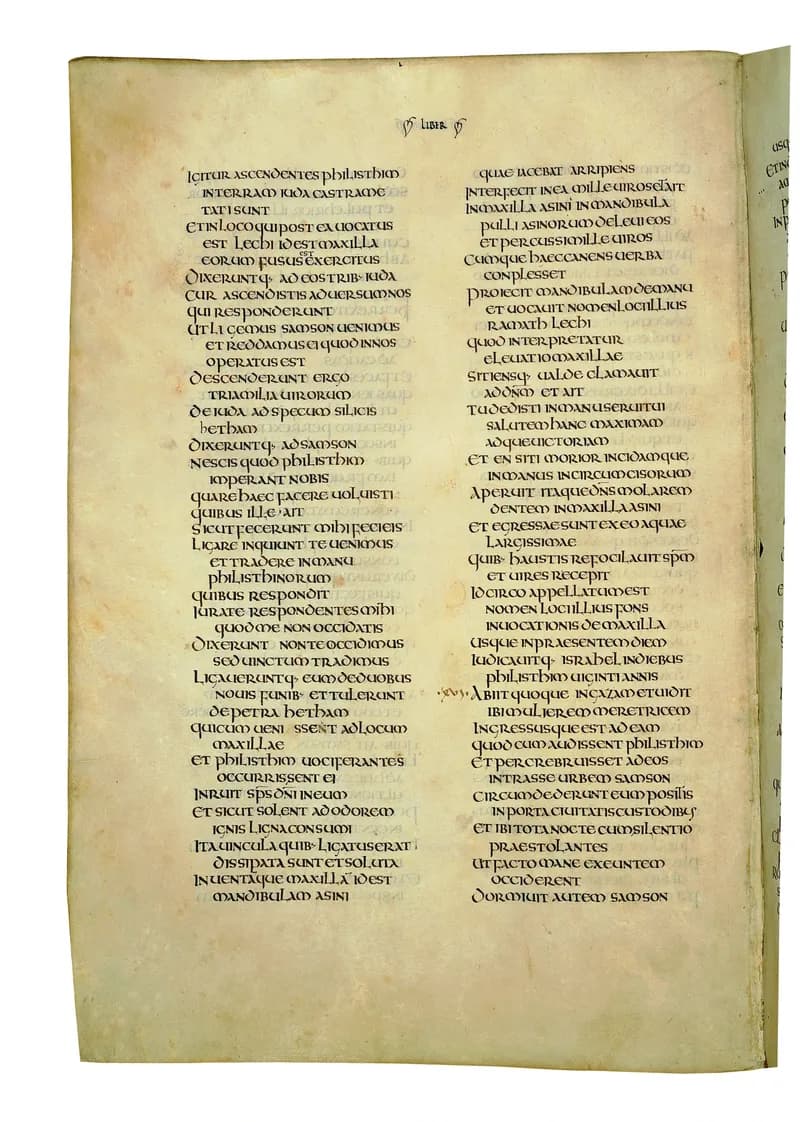 LIBER
IGITUR ASCENDENTES PHILISTHIM
IN TERRAM IUDA CASTRAME
TATI SUNT
ET IN LOCO QUI POSTEA UOCATUS
EST LECHI ID EST MAXILLA
EORUM FUSUS EST EXERCITUS
DIXERUNTQ· AD EOS TRIB· IUDA
CUR ASCENDISTIS ADUERSUM NOS
QUI RESPONDERUNT
UT LIGEMUS SAMSON UENIMUS
ET REDDAMUS EI QUOD IN NOS
OPERATUS EST
DESCENDERUNT ERGO
TRIA MILIA UIRORUM
DE IUDA AD SPECUM SILICIS
hETHAM
DIXERUNTQ· AD SAMSON
NESCIS QUOD PHILISTHIM
IMPERANT NOBIS
QUARE HAEC FACERE UOLUISTI
QUIBUS ILLE AIT
SICUT FECERUNT MIHI FECI EIS
LIGARE INQUIUNT TE UENIMUS
ET TRADERE IN MANU
PHILISTHINORUM
QUIBUS RESPONDIT
IURATE RESPONDENTES MIHI
QUOD ME NON OCCIDATIS
DIXERUNT NON TE OCCIDIMUS
SED UINCTUM TRADIMUS
LIGAUERUNTQ· EUM DE DUOBUS
NOUIS FUNIB· ET TULERUNT
DE PETRA hETHAM
QUI CUM UENI SSENT AD LOCUM
MAXILLAE
ET PHILISTHIM UOCIFERANTES
OCCURRISSENT EI
INRUIT SP̄S DN̄I IN EUM
ET SICUT SOLENT AD ODOREM
IGNIS LIGNA CONSUMI
ITA UINCULA QUIB· LIGATUS ERAT
DISSIPATA SUNT ET SOLUTA
INUENTAQUE MAXILLA ID EST
MANDIBULAM ASINI
QUAE IACEBAT ARRIPIENS
INTERFECIT IN EA MILLE UIROS ET AIT
IN MAXILLA ASINI IN MANDIBULA
PULLI ASINORUM DELEUI EOS
ET PERCUSSI MILLE UIROS
CUMQUE HAEC CANENS UERBA
CONPLESSET
PROIECIT MANDIBULAM DE MANU
ET UOCAUIT NOMEN LOCI ILLIUS
RAMATH LECHI
QUOD INTERPRETATUR
ELEUATIO MAXILLAE
SITIENSQ· UALDE CLAMAUIT
AD DN̄M ET AIT
TU DEDISTI IN MANU SERUI TUI
SALUTEM HANC MAXIMAM
ADQUE UICTORIAM
ET EN SITI MORIOR INCIDAMQUE
IN MANUS INCIRCUMCISORUM
APERUIT ITAQUE DN̄S MOLAREM
DENTEM IN MAXILLA ASINI
ET EGRESSAE SUNT EX EO AQUAE
LARGISSIMAE
QUIB· HAUSTIS REFOCILAUIT SP̄M
ET UIRES RECEPIT
IDCIRCO APPELLATUM EST
NOMEN LOCI ILLIUS FONS
INUOCATIONIS DE MAXILLA
USQUE IN PRAESENTEM DIEM
IUDICAUITQ· ISRAHEL IN DIEBUS
PHILISTHIM UIGINTI ANNIS
·XVI· ABIIT QUOQUE IN GAZAM ET UIDIT
IBI MULIEREM MERETRICEM
INGRESSUSQUE EST AD EAM
QUOD CUM AUDISSENT PHILISTHIM
ET PERCREBRUISSET AD EOS
INTRASSE URBEM SAMSON
CIRCUMDEDERUNT EUM POSITIS
IN PORTA CIUITATIS CUSTODIBUS
ET IBI TOTA NOCTE CUM SILENTIO
PRAESTOLANTES
UT FACTO MANE EXEUNTEM
OCCIDERENT
DORMIUIT AUTEM SAMSON